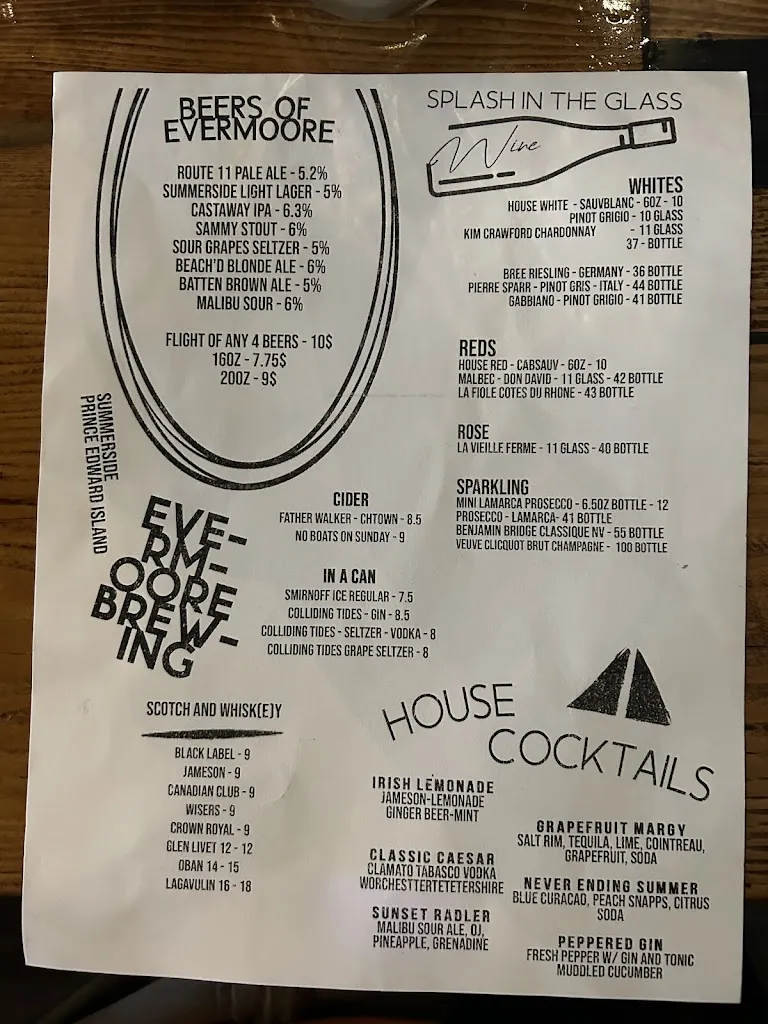 BEERS OF
EVERMOORE
ROUTE 11 PALE ALE - 5.2%
SUMMERSIDE LIGHT LAGER - 5%
CASTAWAY IPA - 6.3%
SAMMY STOUT - 6%
SOUR GRAPES SELTZER - 5%
BEACH'D BLONDE ALE - 6%
BATTEN BROWN ALE - 5%
MALIBU SOUR - 6%
FLIGHT OF ANY 4 BEERS - 10$
16OZ - 7.75$
20OZ - 9$
SPLASH IN THE GLASS
Wine
WHITES
HOUSE WHITE - SAUVBLANC - 6OZ - 10
PINOT GRIGIO - 10 GLASS
KIM CRAWFORD CHARDONNAY - 11 GLASS
37 - BOTTLE
BREE RIESLING - GERMANY - 36 BOTTLE
PIERRE SPARR - PINOT GRIS - ITALY - 44 BOTTLE
GABBIANO - PINOT GRIGIO - 41 BOTTLE
REDS
HOUSE RED - CABSAUV - 6OZ - 10
MALBEC - DON DAVID - 11 GLASS - 42 BOTTLE
LA FIOLE COTES DU RHONE - 43 BOTTLE
ROSE
LA VIEILLE FERME - 11 GLASS - 40 BOTTLE
SPARKLING
MINI LAMARCA PROSECCO - 6.5OZ BOTTLE - 12
PROSECCO - LAMARCA- 41 BOTTLE
BENJAMIN BRIDGE CLASSIQUE NV - 55 BOTTLE
VEUVE CLICQUOT BRUT CHAMPAGNE - 100 BOTTLE
SUMMERSIDE
PRINCE EDWARD ISLAND
EVE-
RM-
OORE
BREW-
ING
CIDER
FATHER WALKER - CHTOWN - 8.5
NO BOATS ON SUNDAY - 9
IN A CAN
SMIRNOFF ICE REGULAR - 7.5
COLLIDING TIDES - GIN - 8.5
COLLIDING TIDES - SELTZER - VODKA - 8
COLLIDING TIDES GRAPE SELTZER - 8
SCOTCH AND WHISK(E)Y
BLACK LABEL - 9
JAMESON - 9
CANADIAN CLUB - 9
WISERS - 9
CROWN ROYAL - 9
GLEN LIVET 12 - 12
OBAN 14 - 15
LAGAVULIN 16 - 18
HOUSE
COCKTAILS
IRISH LEMONADE
JAMESON-LEMONADE
GINGER BEER-MINT
CLASSIC CAESAR
CLAMATO TABASCO VODKA
WORCHESTTERTETETERSHIRE
SUNSET RADLER
MALIBU SOUR ALE, OJ,
PINEAPPLE, GRENADINE
GRAPEFRUIT MARGY
SALT RIM, TEQUILA, LIME, COINTREAU,
GRAPEFRUIT, SODA
NEVER ENDING SUMMER
BLUE CURACAO, PEACH SNAPPS, CITRUS
SODA
PEPPERED GIN
FRESH PEPPER W/ GIN AND TONIC
MUDDLED CUCUMBER